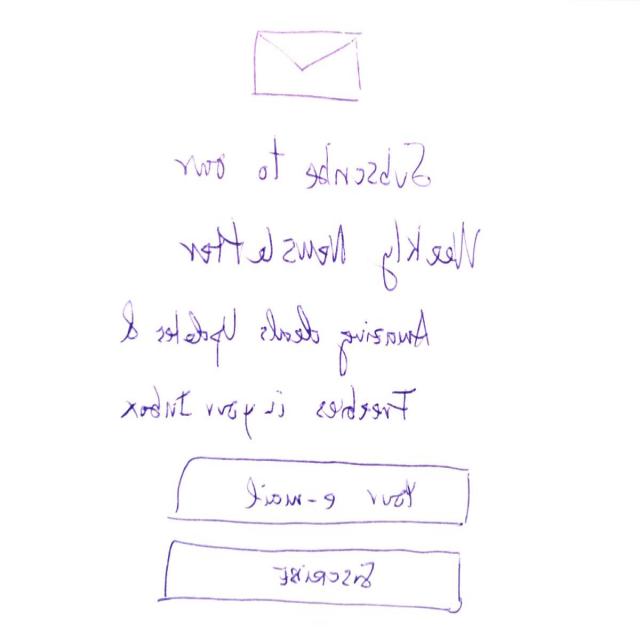 Subscribe to our
Weekly Newsletter
Amazing deals Updates &
Freebies in your Inbox
Your e-mail